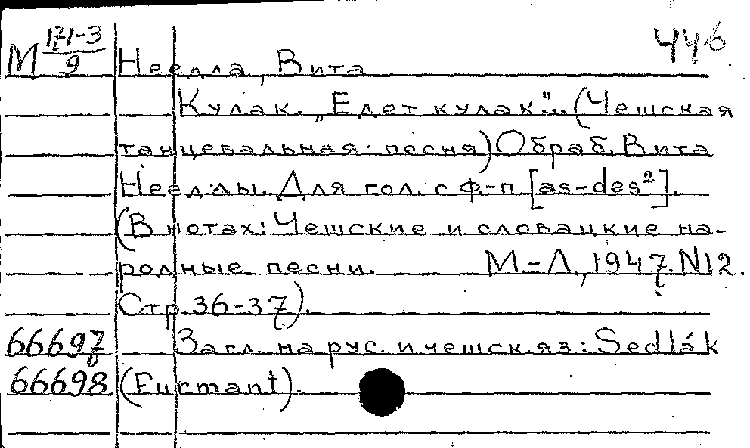 М 171-3/9 Неедла, Вита 446
Кулак. „Едет кулак“... (Чешская
танцевальная песня) Обраб. Вита
Нееллы. Для гол. с ф-п [as-des²].
(В нотах: Чешские и словацкие на-
родные песни. М-Л, 1947. N12.
Стр. 36-37).
66697 Загл. на рус. и чешск. яз: Sedlák
66698 (Furmant).